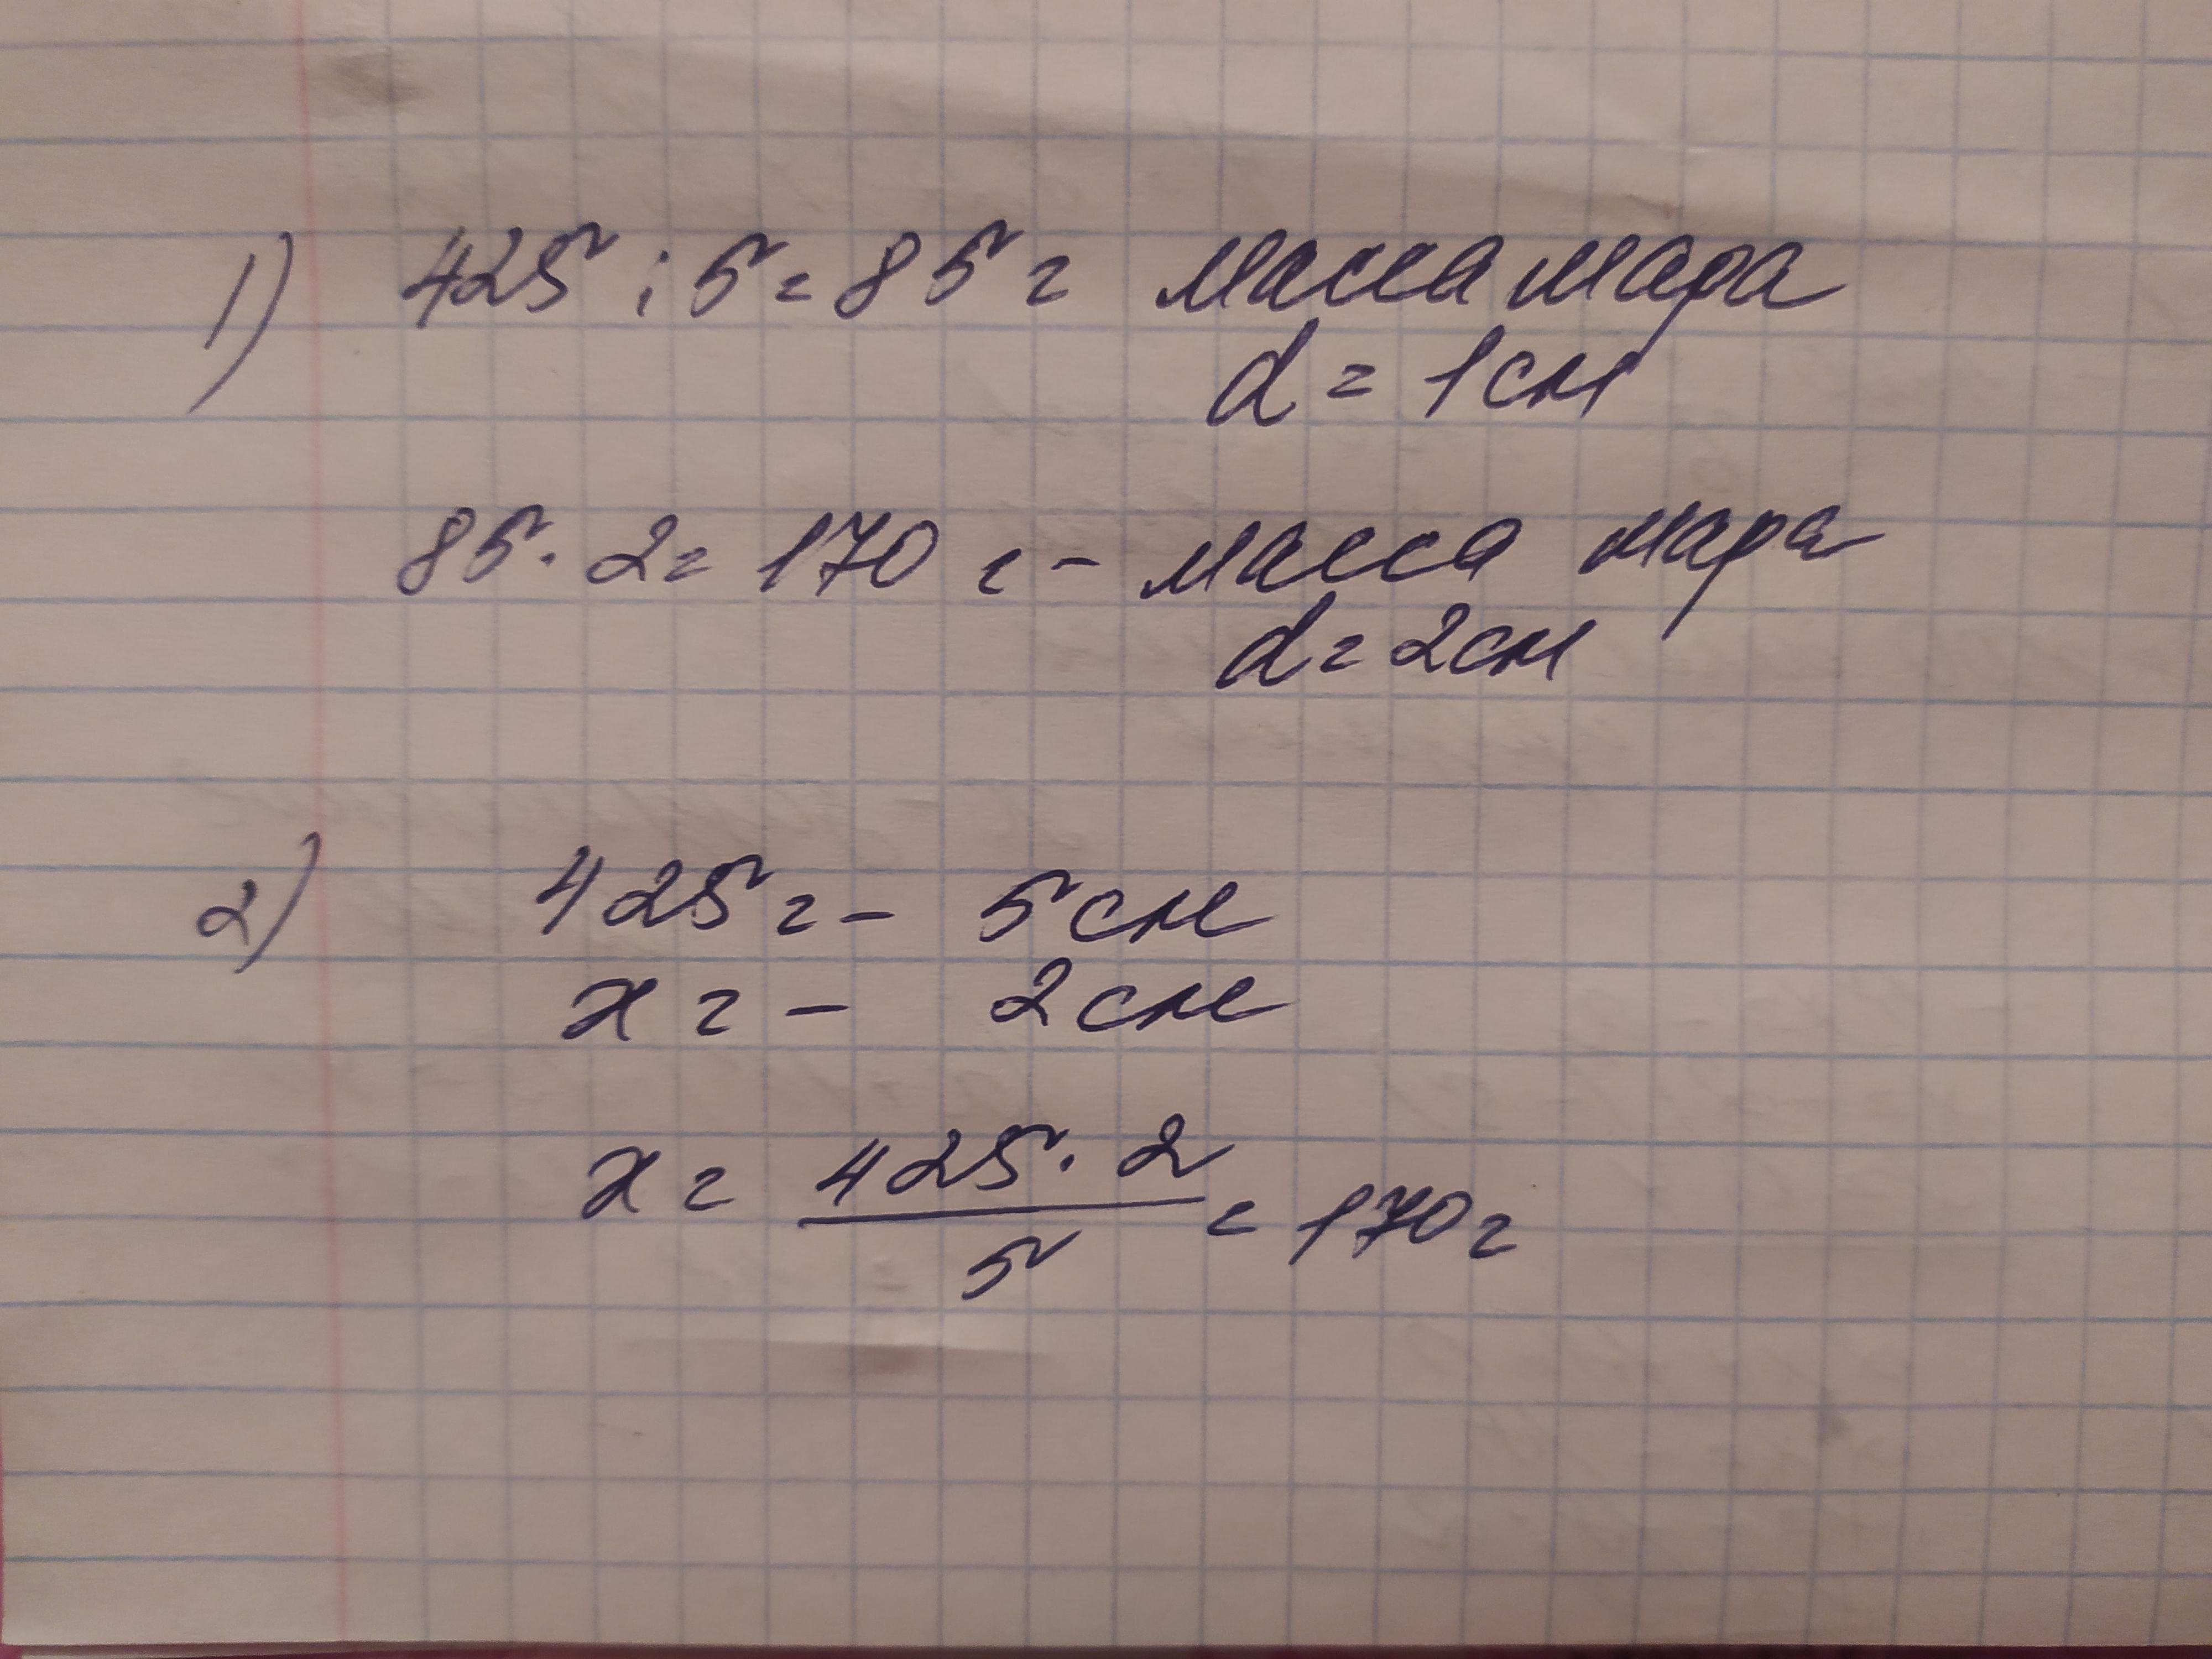 1) 425 : 5 = 85 г масса шара
d = 1см
85 · 2 = 170 г - масса шара
d = 2см
2) 425 г - 5 см
x г - 2 см
x = 425 · 2 / 5 = 170 г